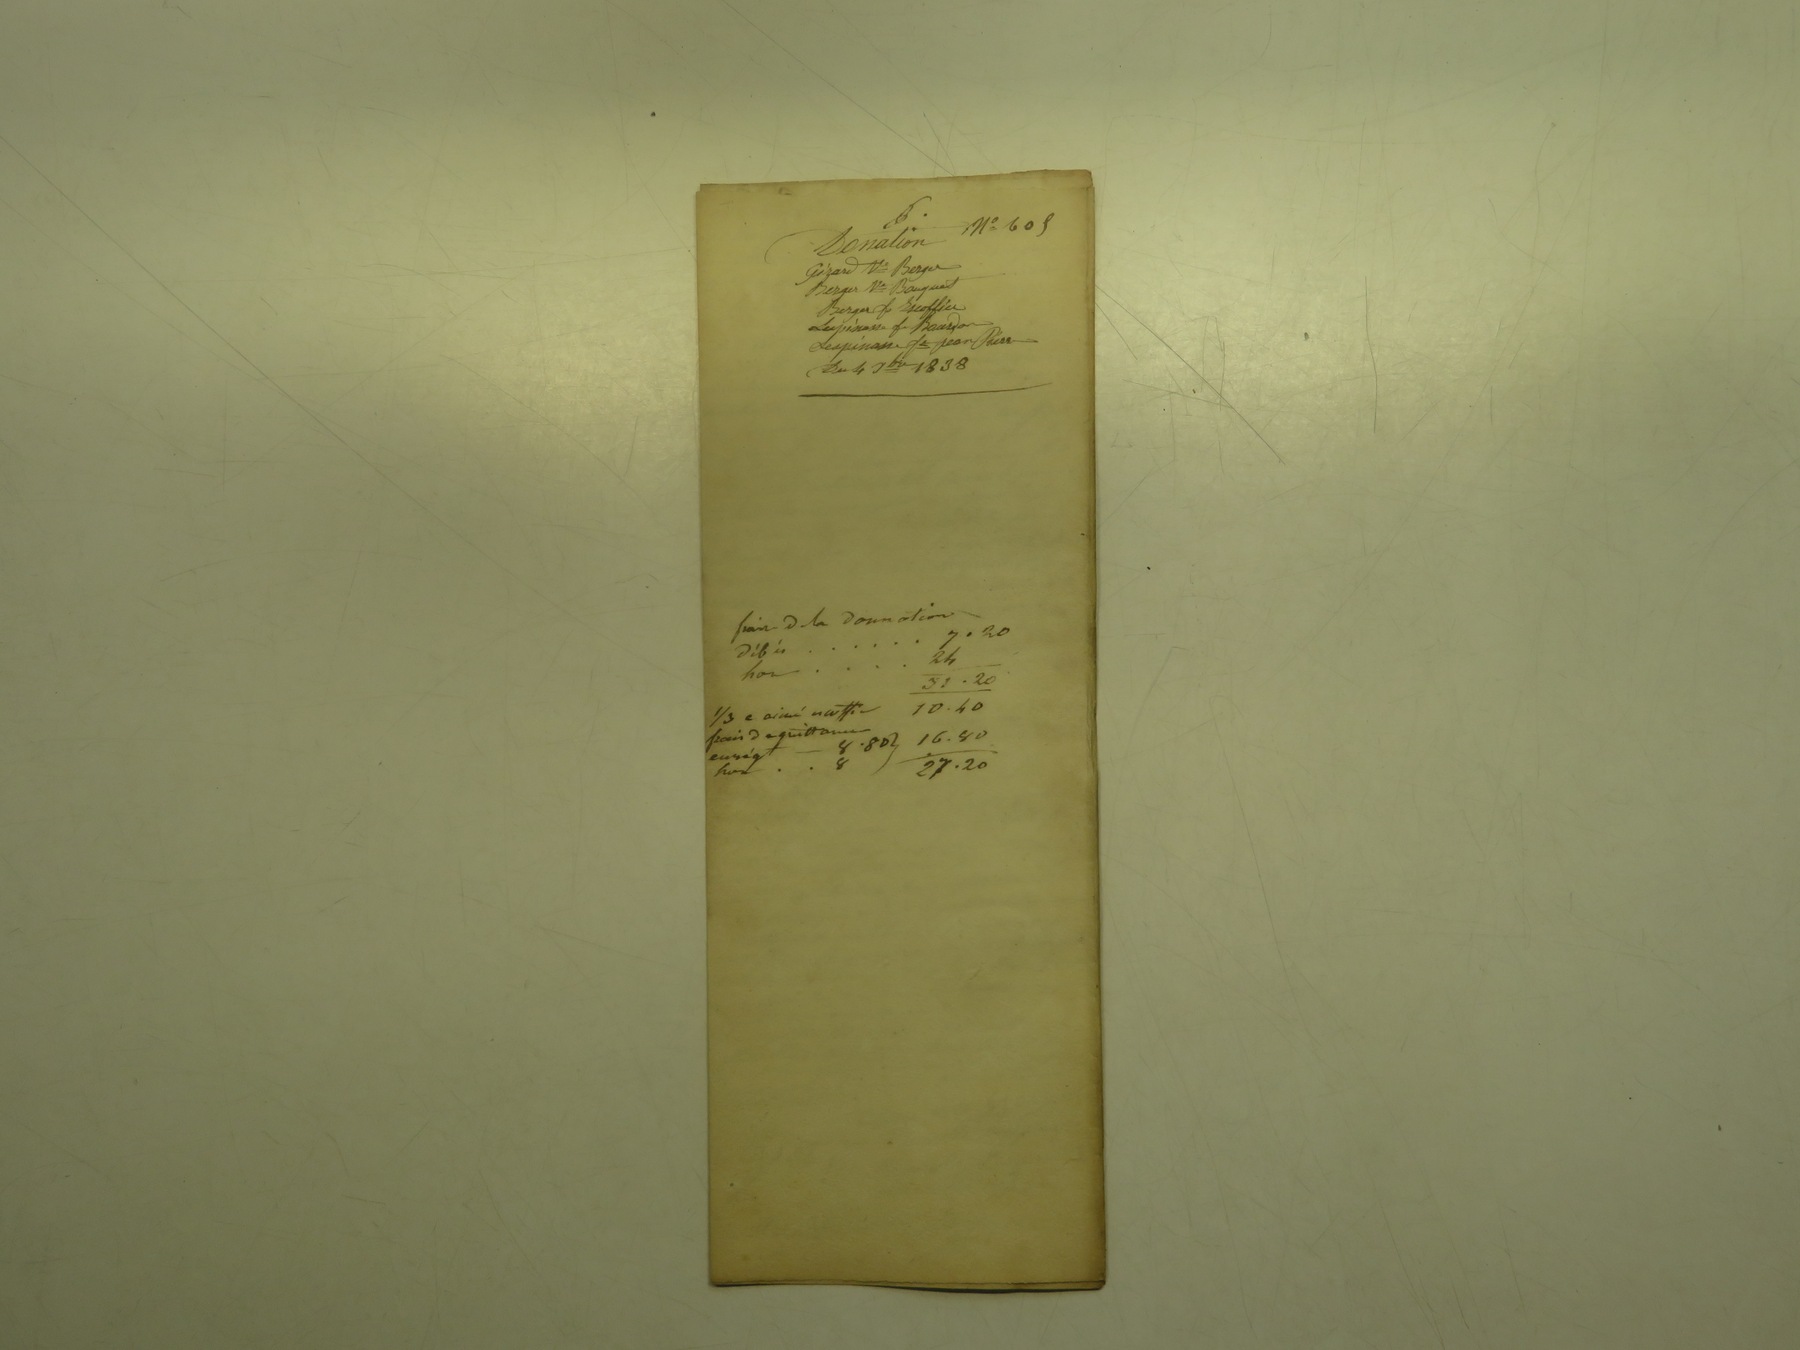 6.
Donation N° 605
Gérard Ve Berger
Berger Ve Bouquet
Berger f Escoffier
Lespinasse f Bourdon
Lespinasse fe jean Pierre
Du 4 7bre 1838
frais d la donnation
7.20
hon . . . . 24
31.20
1/3 e 10.40
frais d quittance
enregt 8.80 } 16.80
hon . . 8
27.20